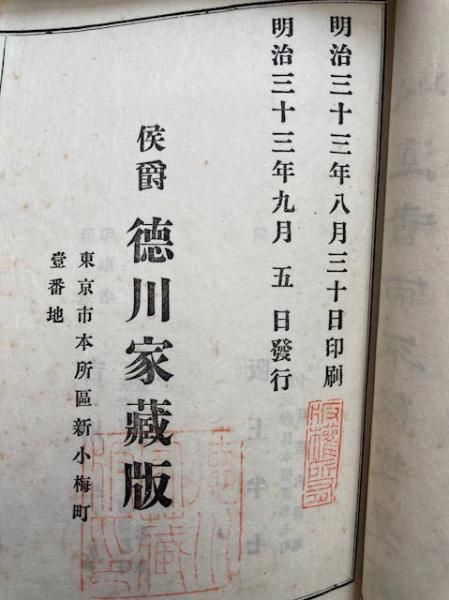 明治三十三年八月三十日印刷
明治三十三年九月五日發行
侯爵 德川家藏版
東京市本所區新小梅町
壹番地
版權所有